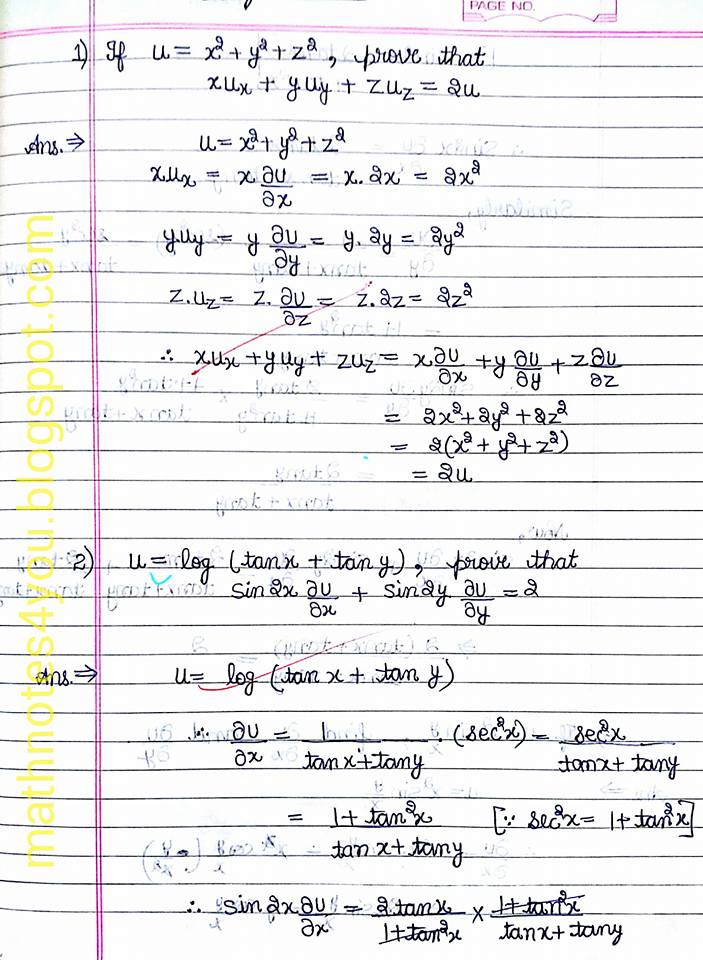 PAGE NO.
1) If u = x² + y² + z², prove that
xux + yuy + zuz = 2u
Ans. ⇒ u = x² + y² + z²
x.ux = x ∂u/∂x = x. 2x = 2x²
y.uy = y ∂u/∂y = y. 2y = 2y²
z.uz = z. ∂u/∂z = z. 2z = 2z²
∴ xux + yuy + zuz = x ∂u/∂x + y ∂u/∂y + z ∂u/∂z
= 2x² + 2y² + 2z²
= 2(x² + y² + z²)
= 2u
2) u = log (tan x + tan y), prove that
sin 2x ∂u/∂x + sin 2y ∂u/∂y = 2
Ans. ⇒ u = log (tan x + tan y)
∴ ∂u/∂x = 1/(tan x + tan y) . (sec²x) = sec²x/(tan x + tan y)
= (1 + tan²x)/(tan x + tan y) [∵ sec²x = 1 + tan²x]
∴ sin 2x ∂u/∂x = 2 tan x/(1 + tan²x) × (1 + tan²x)/(tan x + tan y)
mathnotes4you.blogspot.com